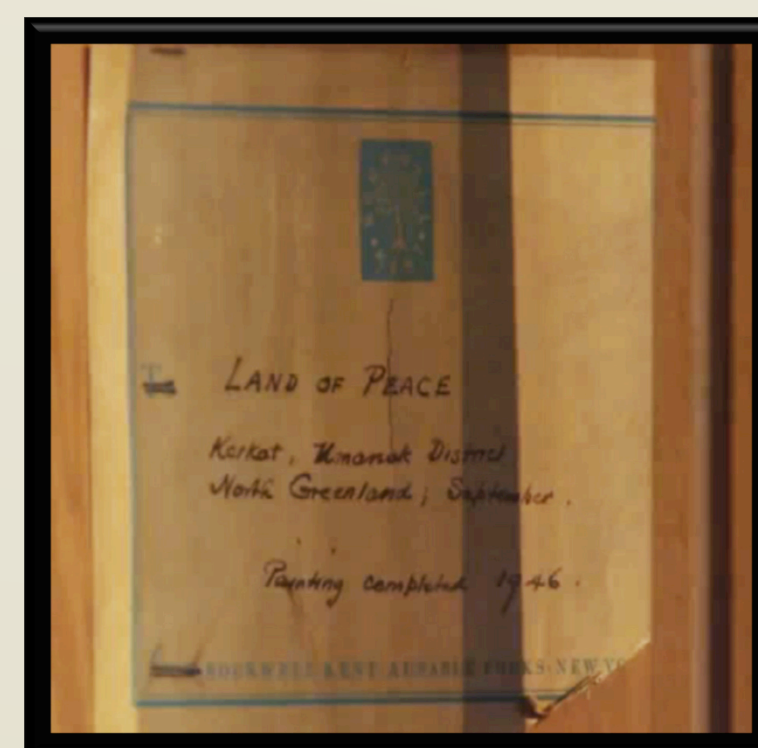 LAND OF PEACE
Karkat, Umanak District
North Greenland; September.
Painting completed 1946.
ROCKWELL KENT AUSABLE FORKS·NEW YO